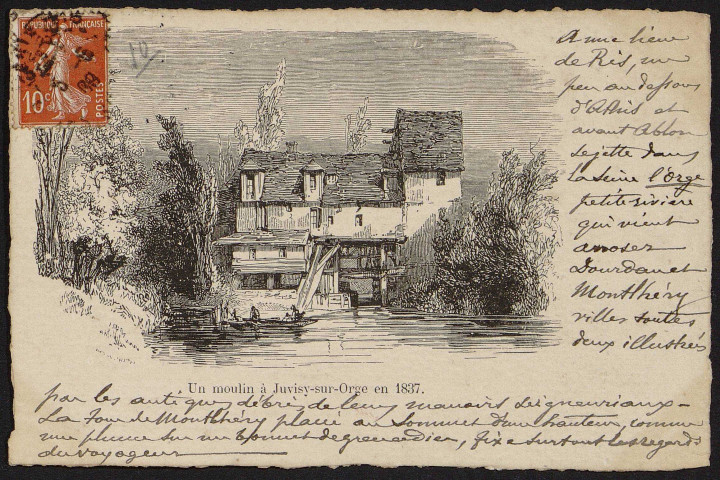 REPUBLIQUE FRANÇAISE
10c
POSTES
10
A une lieue
de Ris, un
peu au dessous
d'Athis et
avant Ablon
se jette dans
la Seine l'Orge
petite rivière
qui vient
arroser
Dourdan et
Montlhéry
villes toutes
deux illustrés
Un moulin à Juvisy-sur-Orge en 1837.
par les antiques débris de leurs manoirs seigneuriaux -
La Tour de Montlhéry placée au sommet d'une hauteur, comme
une plume sur un bonnet de grenadier, fixe surtout les regards
du voyageur